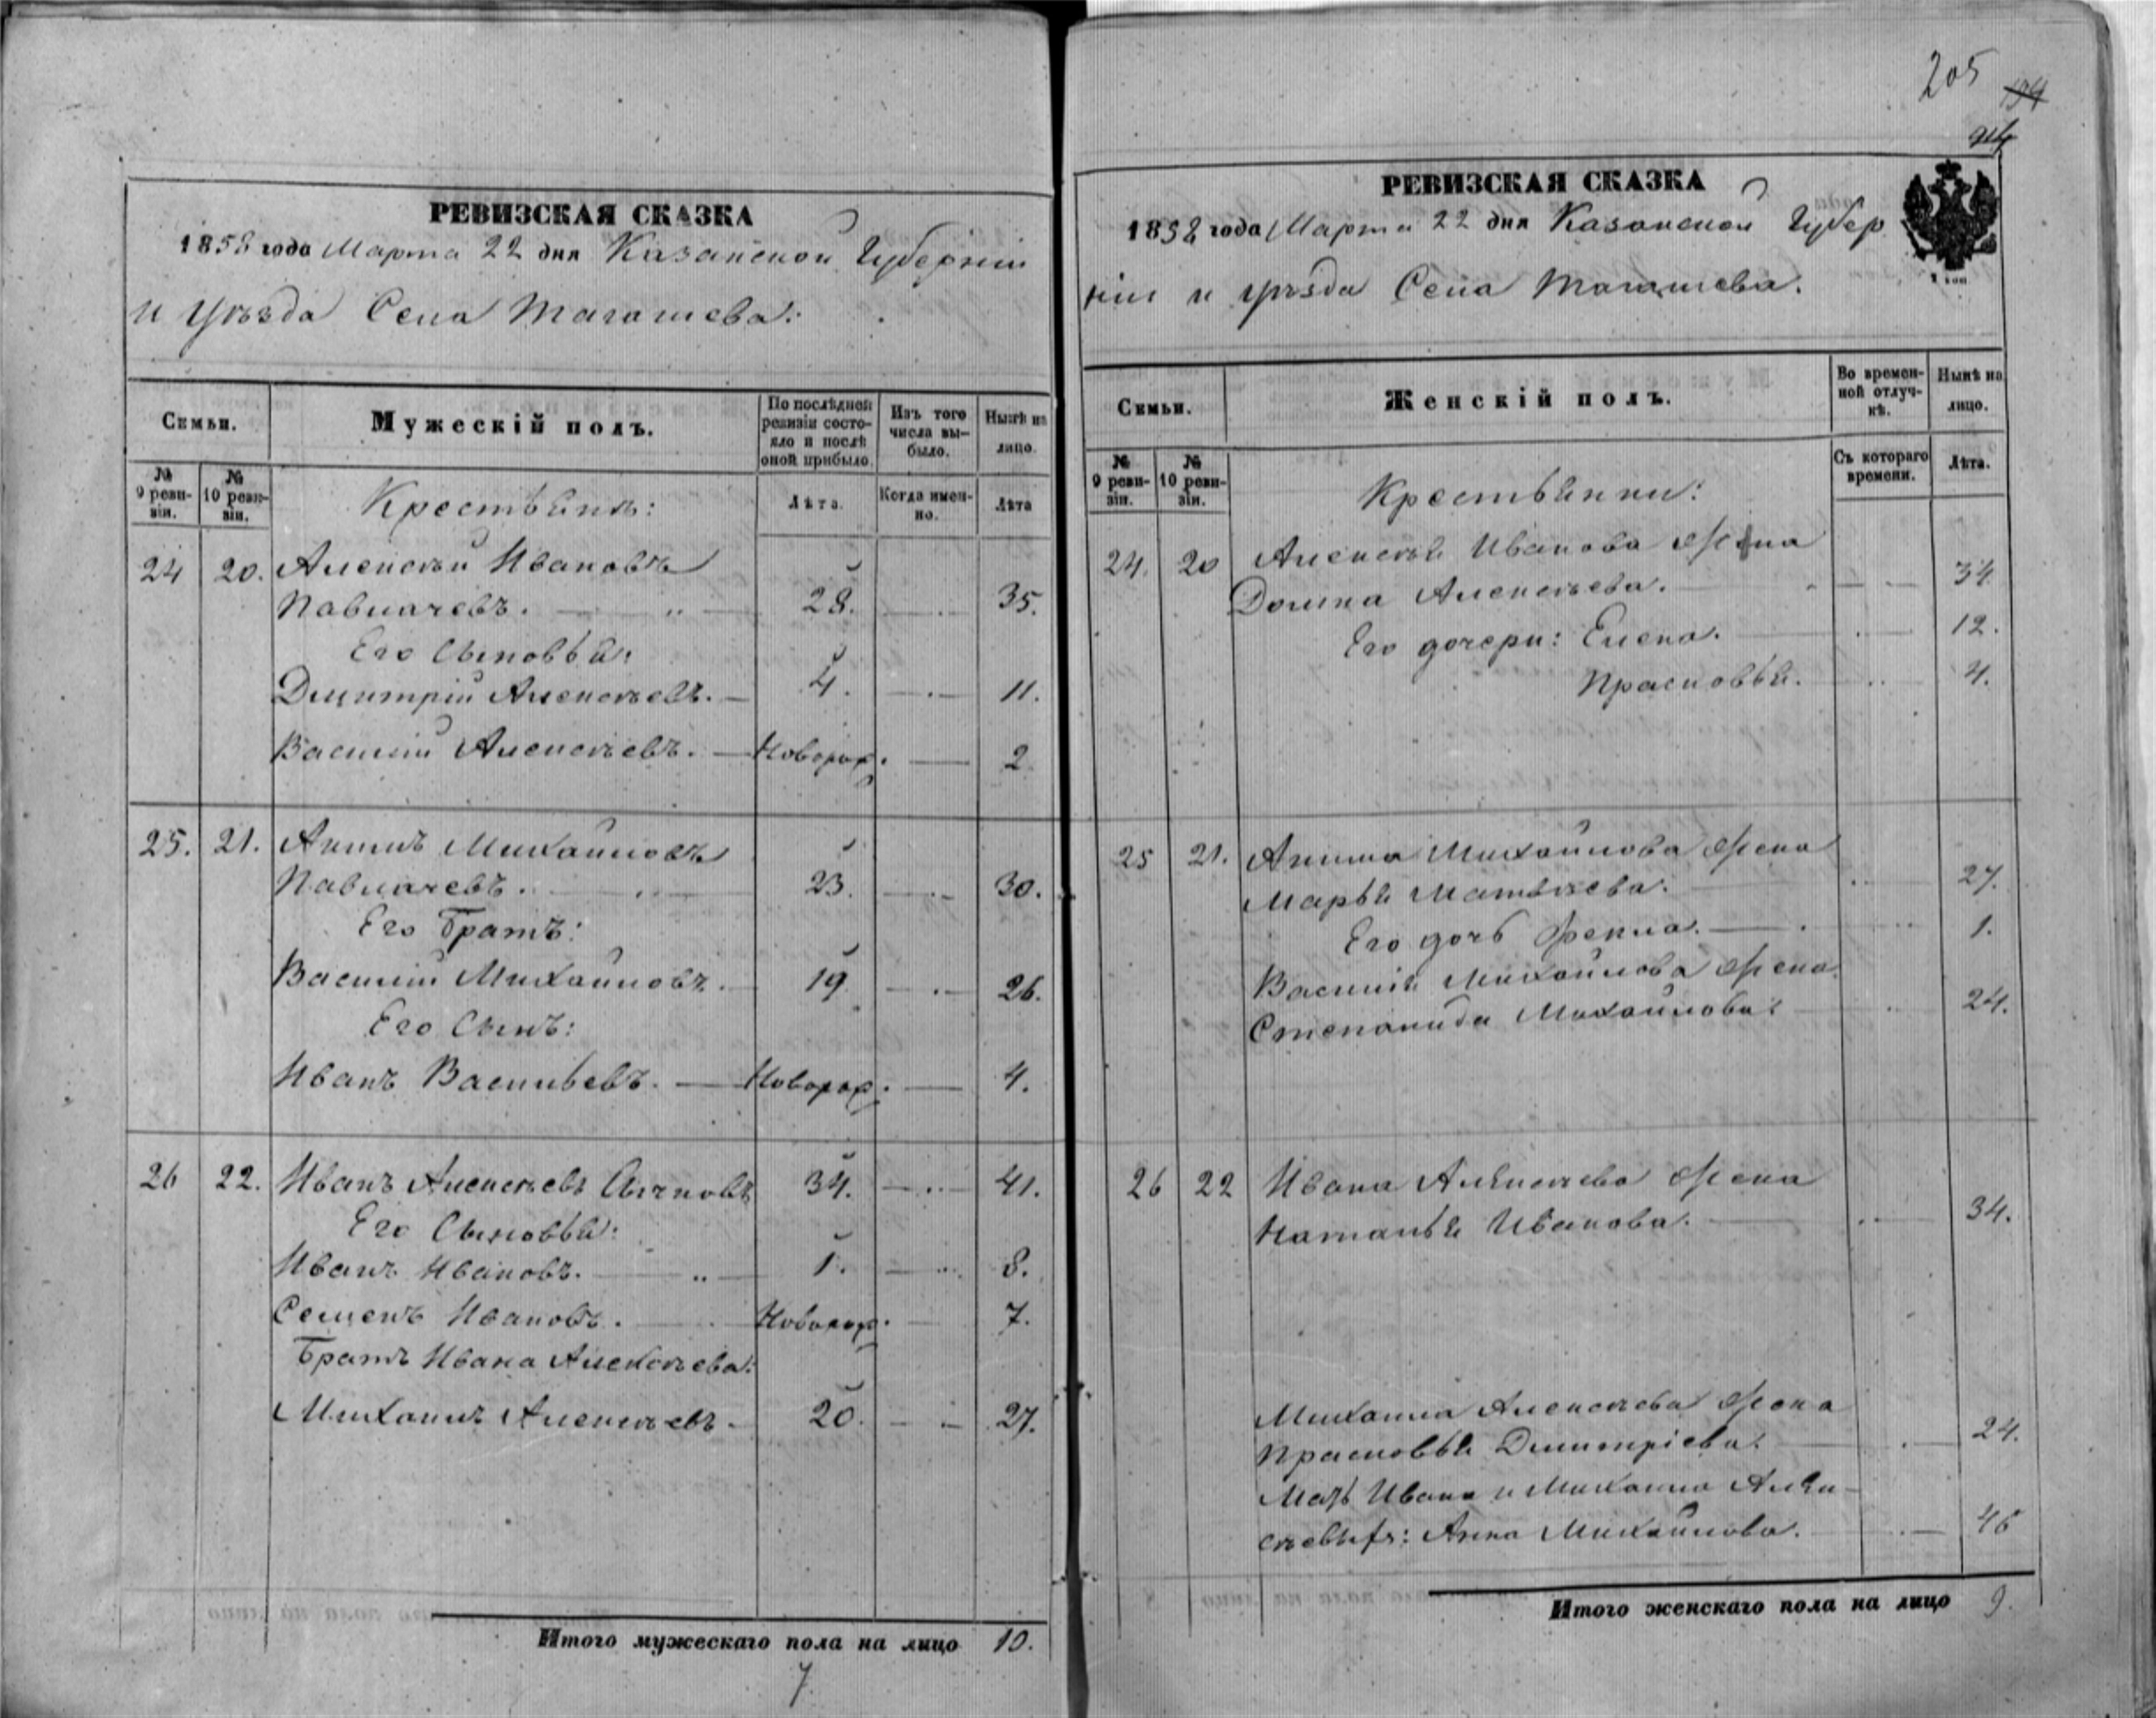 РЕВИЗСКАЯ СКАЗКА
1858 года Марта 22 дня Казанской Губерніи
и Уѣзда Села Тагашева:
Семьи.
Мужескій полъ.
По послѣдней ревизіи состояло и послѣ оной прибыло.
Изъ того числа выбыло.
Нынѣ на лицо.
№ 9 ревизіи.
№ 10 ревизіи.
Крестьянъ:
Лѣта.
Когда именно.
Лѣта
24 20. Алексѣй Ивановъ
Павлачевъ. 28. 35.
Его Сыновья:
Дмитрій Алексѣевъ. 4. 11.
Василій Алексѣевъ. Новорож. 2
25. 21. Акимъ Михайловъ
Павлачевъ. 23. 30.
Его Братъ:
Василій Михайловъ. 19 26.
Его Сынъ:
Иванъ Васильевъ. Новорож. 4.
26 22. Иванъ Алексѣевъ 34. 41.
Его Сыновья:
Иванъ Ивановъ. 1. 8.
Семенъ Ивановъ. Новорож. 7.
Братъ Ивана Алексѣева:
Михаилъ Алексѣевъ. 20. 27.
Итого мужескаго пола на лицо 10.
7
205
194
94
РЕВИЗСКАЯ СКАЗКА
1858 года Марта 22 дня Казанской Губер
ніи и уѣзда Села Тагашева.
Семьи.
Женскій полъ.
Во временной отлучкѣ.
Нынѣ на лицо.
№ 9 ревизіи.
№ 10 ревизіи.
Крестьянки:
Съ котораго времени.
Лѣта.
24. 20 Алексѣя Иванова жена
Домна Алексѣева. 34
Его дочери: Елена. 12.
Прасковья. 4.
25 21. Акима Михайлова жена
Марья Матвѣева. 27.
Его дочь Фекла. 1.
Василія Михайлова жена
Степанида Михайлова: 24.
26 22 Ивана Алексѣева жена
Наталья Иванова. 34.
Михаила Алексѣева жена
Прасковья Димитріева. 24.
Мать Ивана и Михаила Алек-
сѣевыхъ: Анна Михайлова. 46
Итого женскаго пола на лицо 9.